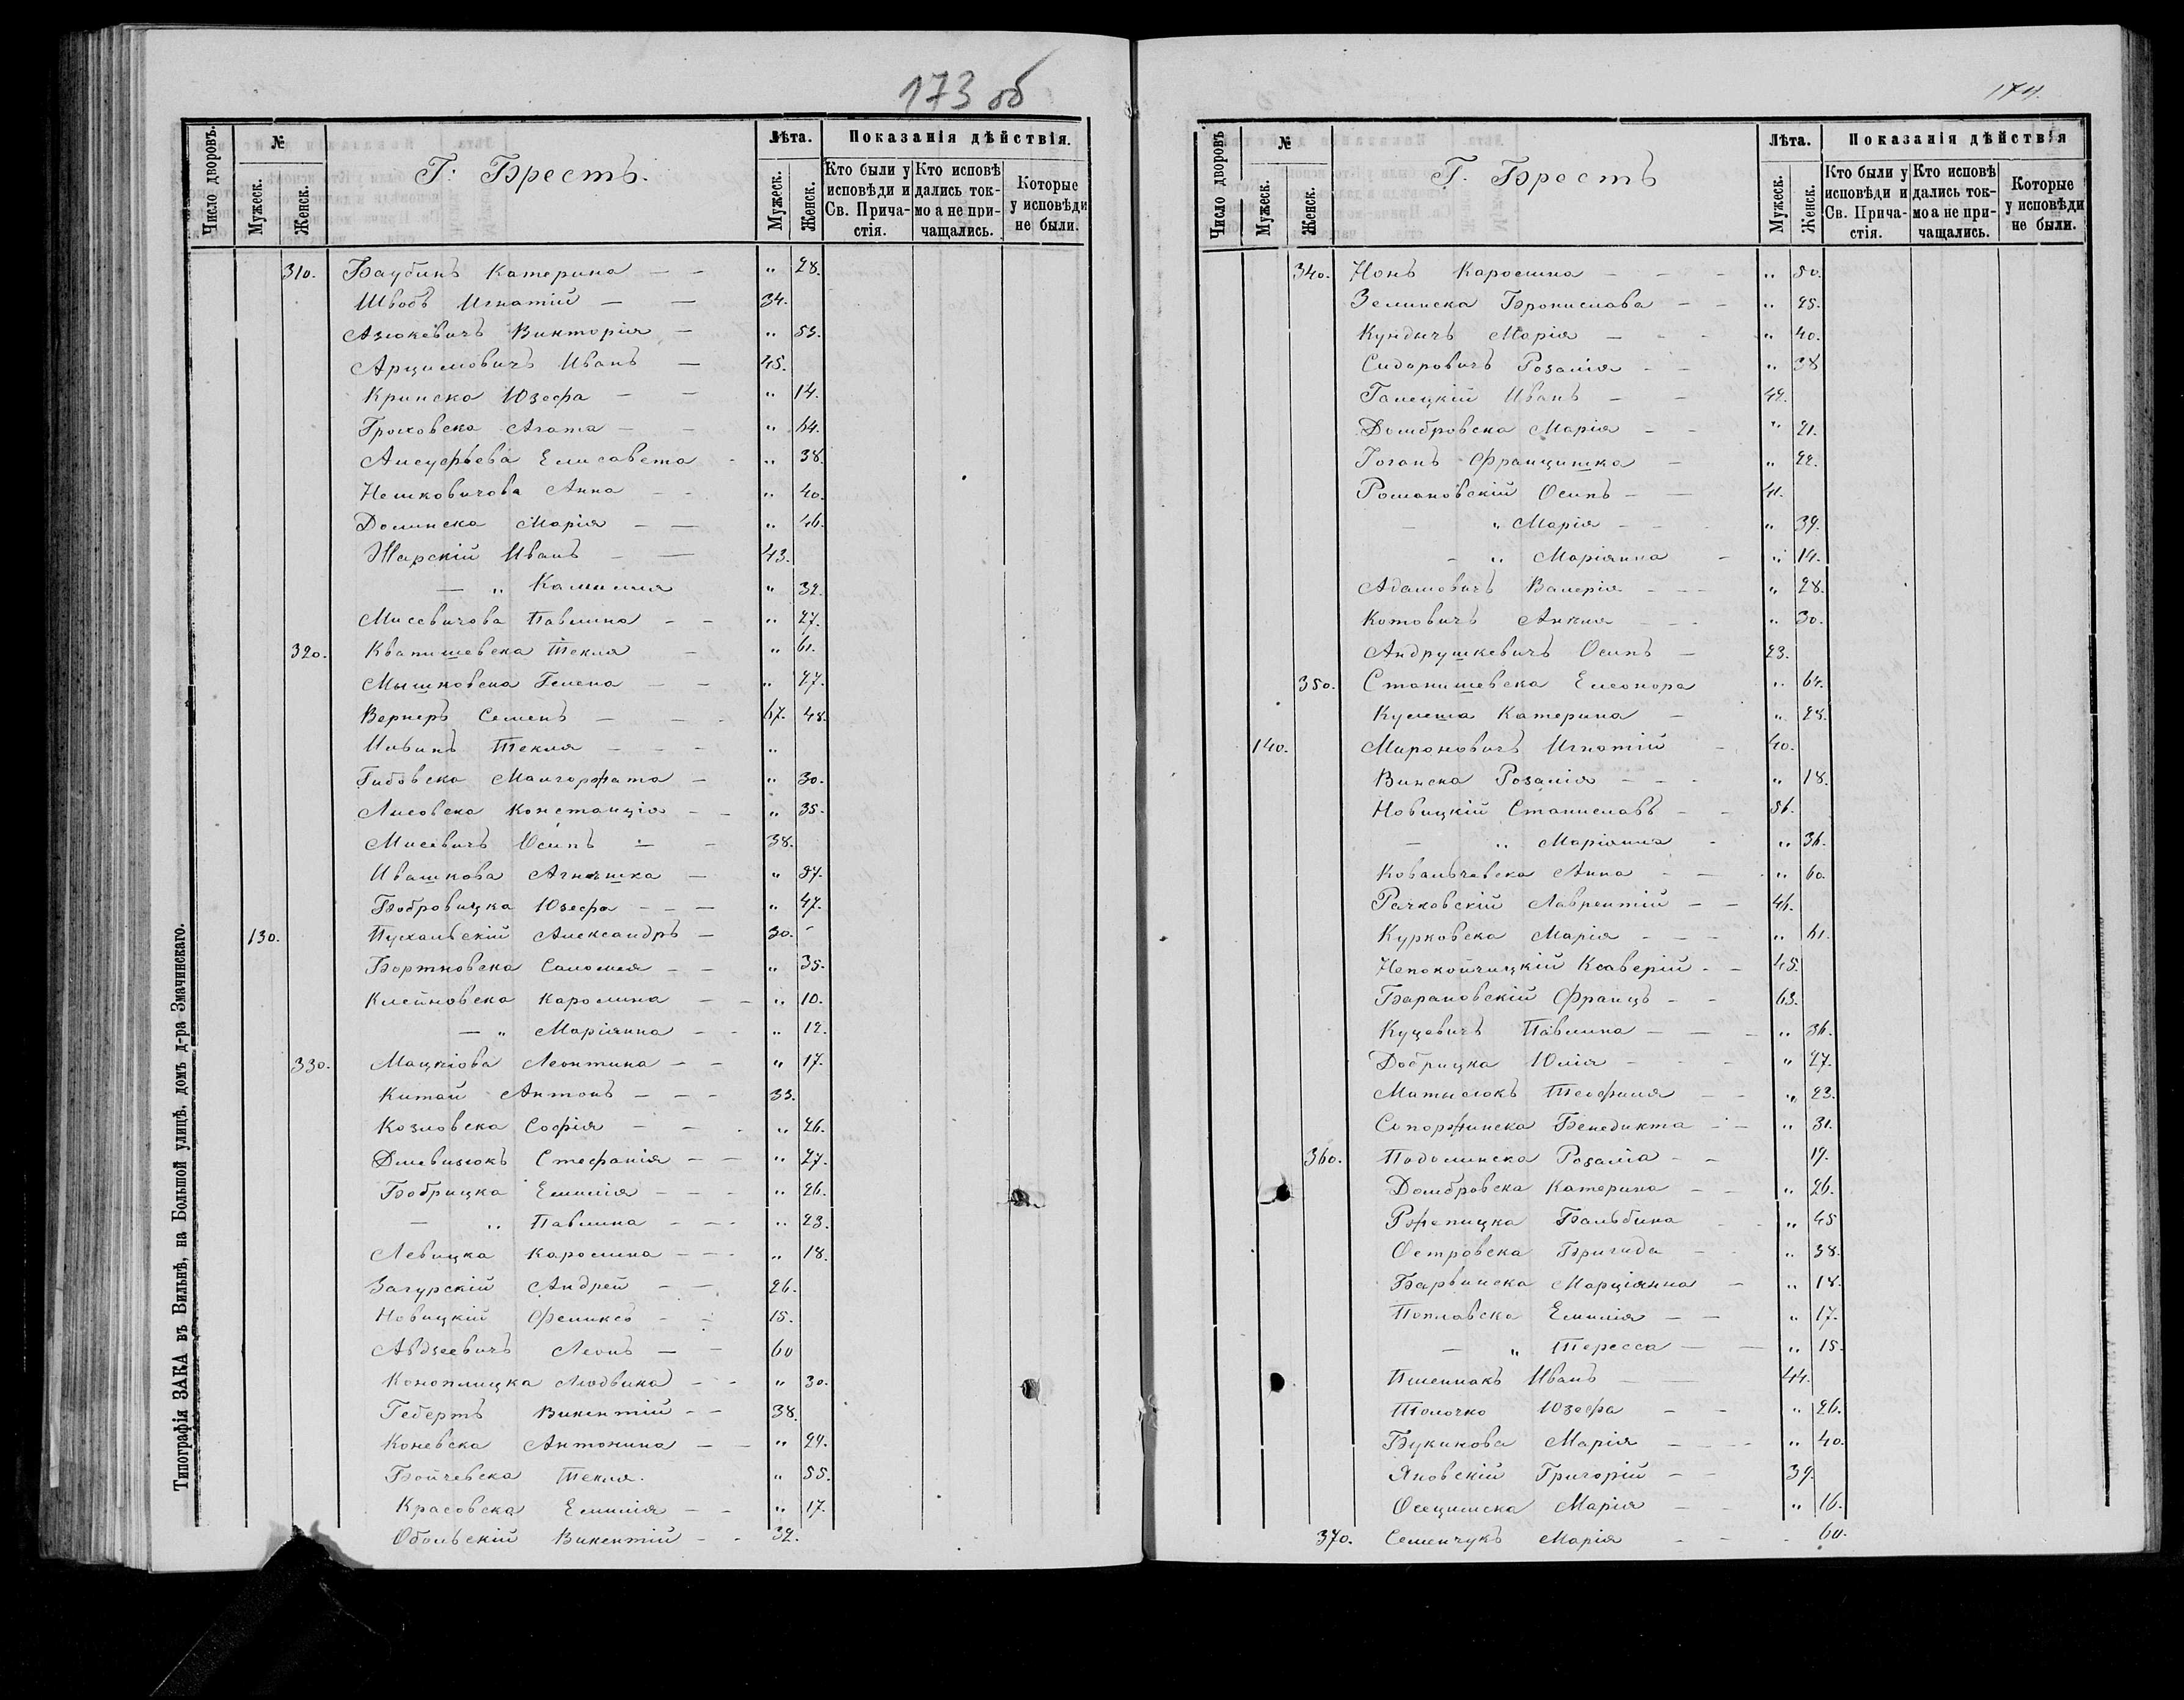 173 об
Число дворовъ.
№
Мужеск.
Женск.
Г. Брестъ.
Лѣта.
Мужеск.
Женск.
Показанія дѣйствія.
Кто были у исповѣди и Св. Прича-стія.
Кто исповѣдались ток-мо а не при-чащались.
Которые у исповѣди не были.
310. Баубинъ Катерина — — „ 28.
Швабъ Игнатій — — 34.
Азюкевичъ Викторія — „ 53.
Арцимовичъ Иванъ — 45.
Кринска Юзефа — — „ 14.
Гроховска Агата — — „ 64.
Алсуфьева Елисавета - „ 38.
Нешковичова Анна — - „ 40.
Долинска Марія — — „ 46.
Жарскій Иванъ — — 43.
— „ Камилля „ 32.
Мисевичова Павлина - - „ 27.
320. Квапишевска Текля — „ 61.
Мышковска Гелена — — „ 27.
Вернеръ Семенъ — — . 67. 48.
Текля — — - „
Гибовска Малгоржата — „ 30.
Лисовска Констанція — - „ 35.
Мисевичъ Осипъ — - 38.
Ивашкова Агнѣшка — „ 37.
Бобровицка Юзефа — - — „ 47.
130. Пухальскій Александръ — 30. -
Бортновска Саломея — - „ 35.
Клейновска Каролина — — „ 10.
— „ Маріянна — - „ 12.
330. Мацкіова Леонтина — — „ 17.
Китай Антонъ — — - 33.
Козловска Софія — — . „ 26.
Стефанія — — „ 27.
Бобрицка Емилія — - - „ 26.
— „ Павлина — — - „ 23.
Левицка Каролина — — - „ 18.
Загурскій Андрей — — 26.
Новицкій Феликсъ - - 15.
Авдзеевичъ Леонъ — — 60
Коноплицка Людвика — - „ 30.
Гебертъ Викентій — — 38.
Коневска Антонина — — „ 24.
Бойчевска Текля. „ 55.
Красовска Емилія — - „ 17.
Обольскій Викентій - - 32.
Типографія ЗАКА въ Вильнѣ, на Большой улицѣ, домъ д-ра Змачинскаго.
174.
Число дворовъ
№
Мужеск.
Женск.
Г. Брестъ
Лѣта.
Мужеск.
Женск.
Показанія дѣйствія
Кто были у исповѣди и Св. Прича-стія.
Кто исповѣдались ток-мо а не при-чащались.
Которые у исповѣди не были.
340. Нонъ Каролина — - - „ 50.
Зелинска Бронислава — - „ 25.
Кундичъ Марія — - - „ 40.
Сидоровичъ Розалія - - „ 38
Галецкій Иванъ — - 42.
Домбровска Марія — - „ 21.
Гоганъ Францишка — „ 22.
Романовскій Осипъ — — 41.
— „ Марія — - „ 39.
- „ Маріянна - „ 14.
Адамовичъ Валерія - — - „ 28.
Котовичъ - - „ 30.
Андрушкевичъ Осипъ — 23.
350. Станишевска Елеонора „ 64.
Кулеша Катерина — „ 28.
140. Мироновичъ Игнатій - 40.
Винска Розалія — - - „ 18.
Новицкій Станиславъ — - 56.
— „ Маріянна - „ 36.
Ковальчевска Анна - — „ 60.
Рачковскій Лаврентій — — 46.
Курковска Марія — - — „ 61.
Непокойчицкій Ксаверій - — 45.
Барановскій Францъ — - 63.
Куцевичъ Павлина — — — „ 36.
Добрицка Юлія — - - „ 27.
Матыслокъ Теофиля — - „ 23.
Бенедикта - — „ 31.
360. Подолинска Розалія - - 19.
Домбровска Катерина — - „ 26.
Ржепицка Бальбина - - „ 45
Островска Бригида — - „ 38.
Барвинска Марціянна — „ 18.
Поплавска Емилія — — „ 17.
— „ Тересса — — „ 15.
Пшеннакъ Иванъ — — 44.
Толочко Юзефа — - „ 26.
Букинова Марія — - — „ 40.
Яновскій Григорій — - 39.
Марія — - „ 16.
370. Семенчукъ Марія - - - 60.